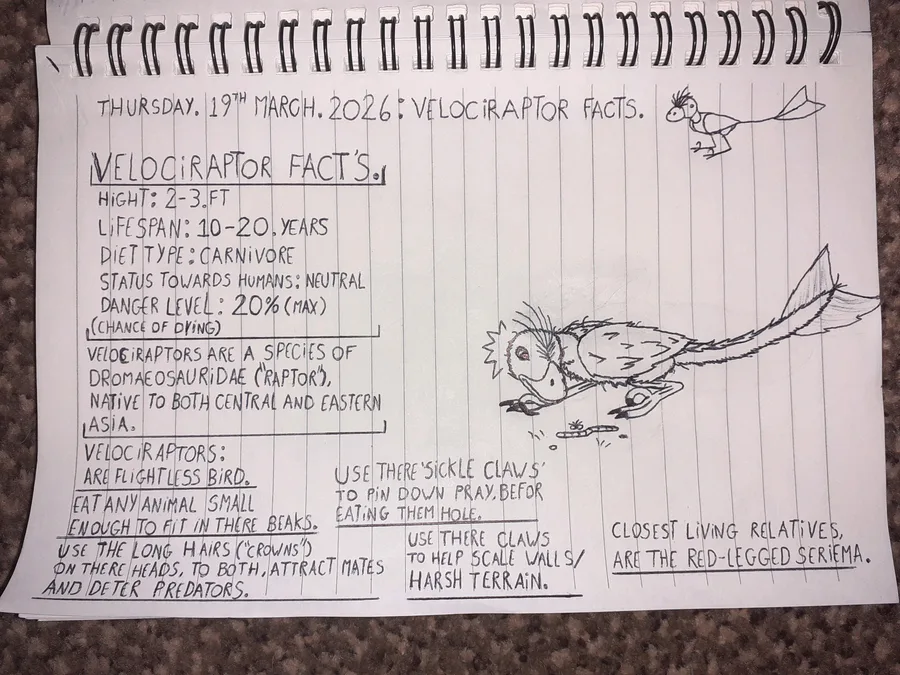 THURSDAY. 19TH MARCH. 2026: VELOCIRAPTOR FACTS.
VELOCIRAPTOR FACT'S.
HIGHT: 2-3.FT
LIFESPAN: 10-20. YEARS
DIET TYPE: CARNIVORE
STATUS TOWARDS HUMANS: NEUTRAL
DANGER LEVEL: 20% (MAX)
(CHANCE OF DYING)
VELOCIRAPTORS ARE A SPECIES OF
DROMAEOSAURIDAE ("RAPTOR"),
NATIVE TO BOTH CENTRAL AND EASTERN
ASIA.
VELOCIRAPTORS:
ARE FLIGHTLESS BIRD.
EAT ANY ANIMAL SMALL
ENOUGH TO FIT IN THERE BEAKS.
USE THE LONG HAIRS ("CROWNS")
ON THERE HEADS, TO BOTH, ATTRACT MATES
AND DETER PREDATORS.
USE THERE 'SICKLE CLAWS'
TO PIN DOWN PRAY, BEFOR
EATING THEM HOLE.
USE THERE CLAWS
TO HELP SCALE WALLS/
HARSH TERRAIN.
CLOSEST LIVING RELATIVES,
ARE THE RED-LEGGED SERIEMA.